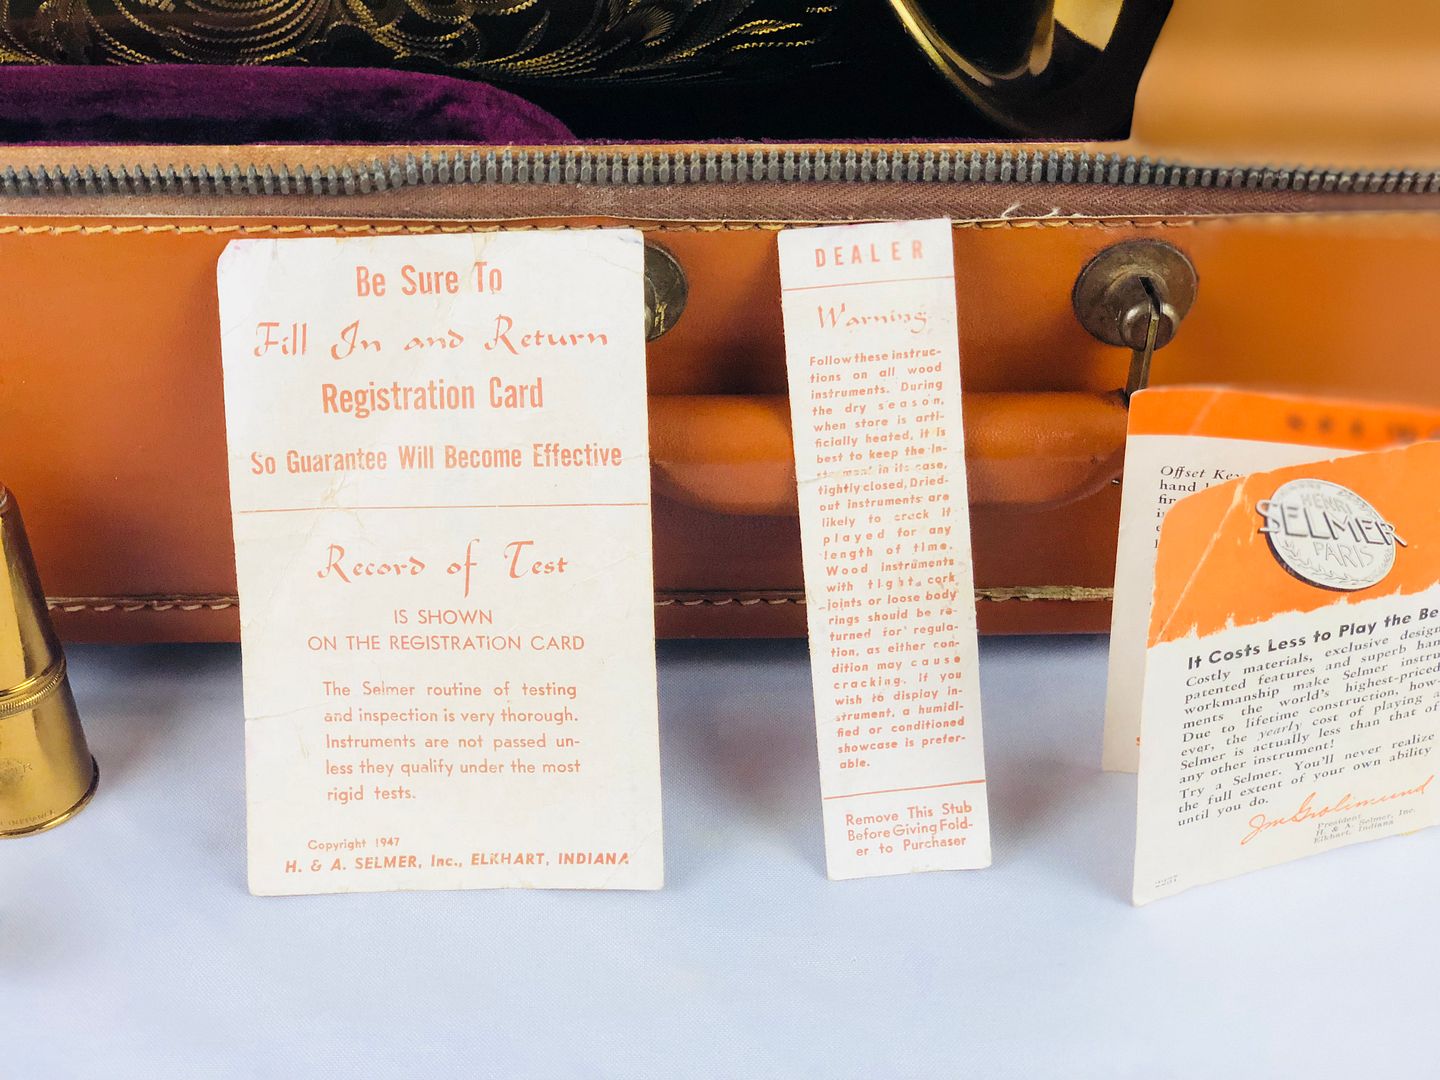 Be Sure To
Fill In and Return
Registration Card
So Guarantee Will Become Effective
Record of Test
IS SHOWN
ON THE REGISTRATION CARD
The Selmer routine of testing
and inspection is very thorough.
Instruments are not passed un-
less they qualify under the most
rigid tests.
Copyright 1947
H. & A. SELMER, Inc., ELKHART, INDIANA
DEALER
Warning
Follow these instruc-
tions on all wood
instruments. During
the dry season,
when store is arti-
ficially heated, it is
best to keep the in-
strument in its case,
tightly closed, Dried-
out instruments are
likely to crack if
played for any
length of time.
Wood instruments
with tight cork
joints or loose body
rings should be re-
turned for regula-
tion, as either con-
dition may cause
cracking. If you
wish to display in-
strument, a humidi-
fied or conditioned
showcase is prefer-
able.
Remove This Stub
Before Giving Fold-
er to Purchaser
Offset Key
hand
HENRI
SELMER
PARIS
It Costs Less to Play the Be
Costly materials, exclusive design
patented features and superb han
workmanship make Selmer instru
ments the world's highest-priced
Due to lifetime construction, how-
ever, the yearly cost of playing a
Selmer is actually less than that of
any other instrument!
Try a Selmer. You'll never realize
the full extent of your own ability
until you do.
President
H. & A. Selmer, Inc.
Elkhart, Indiana